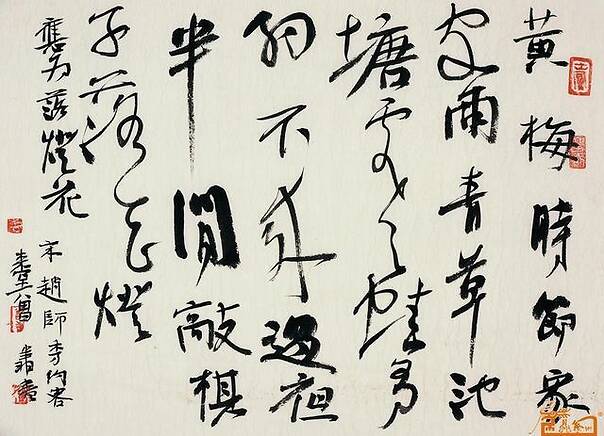 黃梅時節家
家雨青草池
塘處之蛙有
約不來過夜
半閒敲棋
子落花燈
應为落燈花
宋趙師秀約客